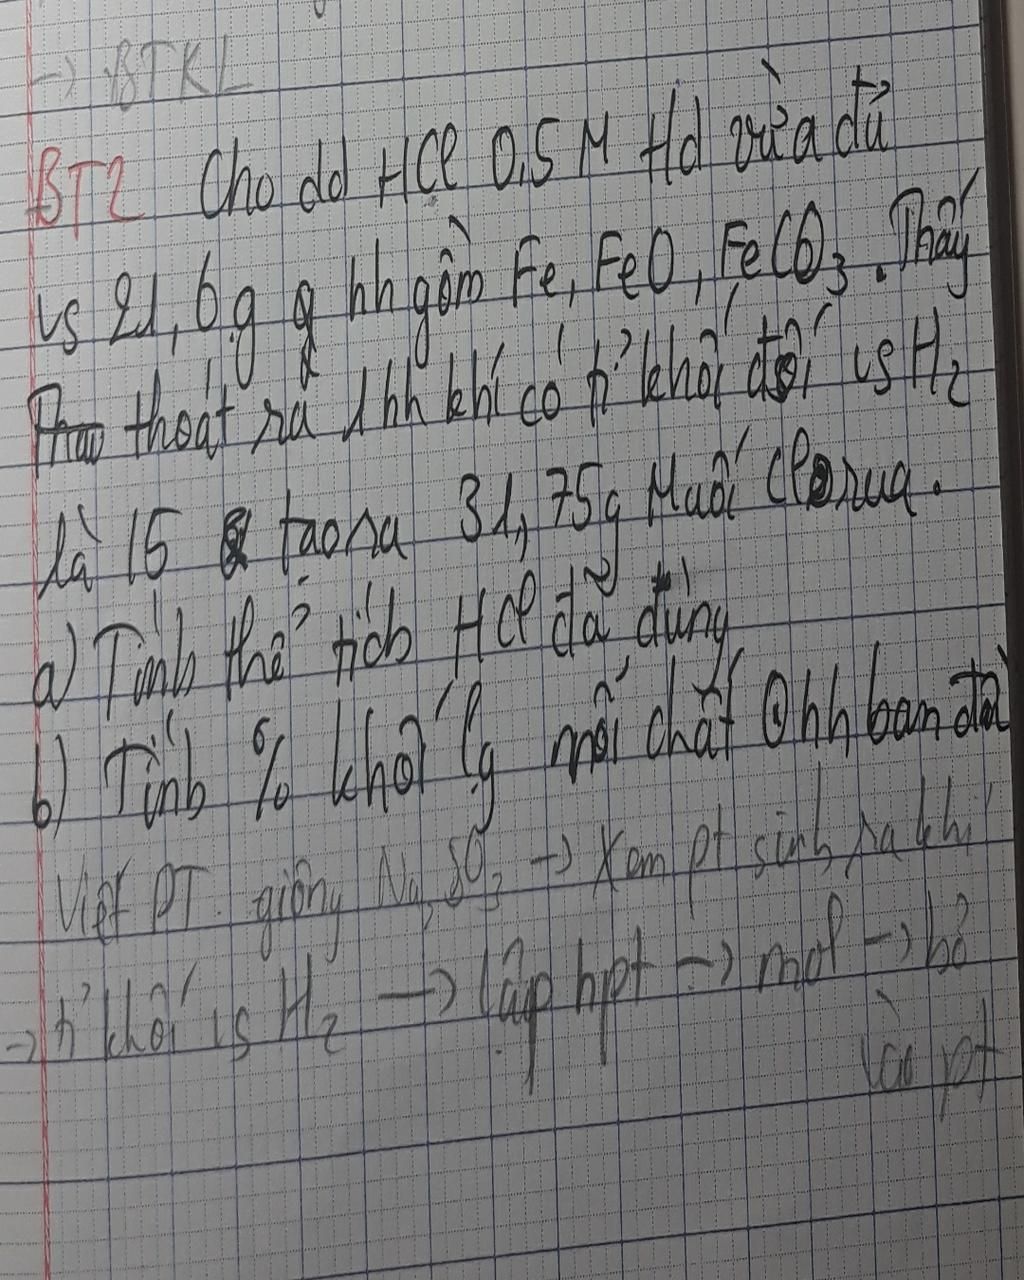 → BTKL
BT2 Cho dd HCl 0,5 M td vừa đủ
vs 21,6g g hh gồm Fe, FeO, FeCO3. Thấy
thoát ra 1 hh khí có tỉ khối đối vs H2
là 15 & tạo ra 31,75g Muối Clorua.
a) Tính thể tích HCl đã dùng
b) Tính % khối lg mỗi chất hh ban đầ
Viết PT giống Na2SO3 → Xem pt sinh ra khí
→ tỉ khối vs H2 → lập hpt → mol → bỏ
vào pt